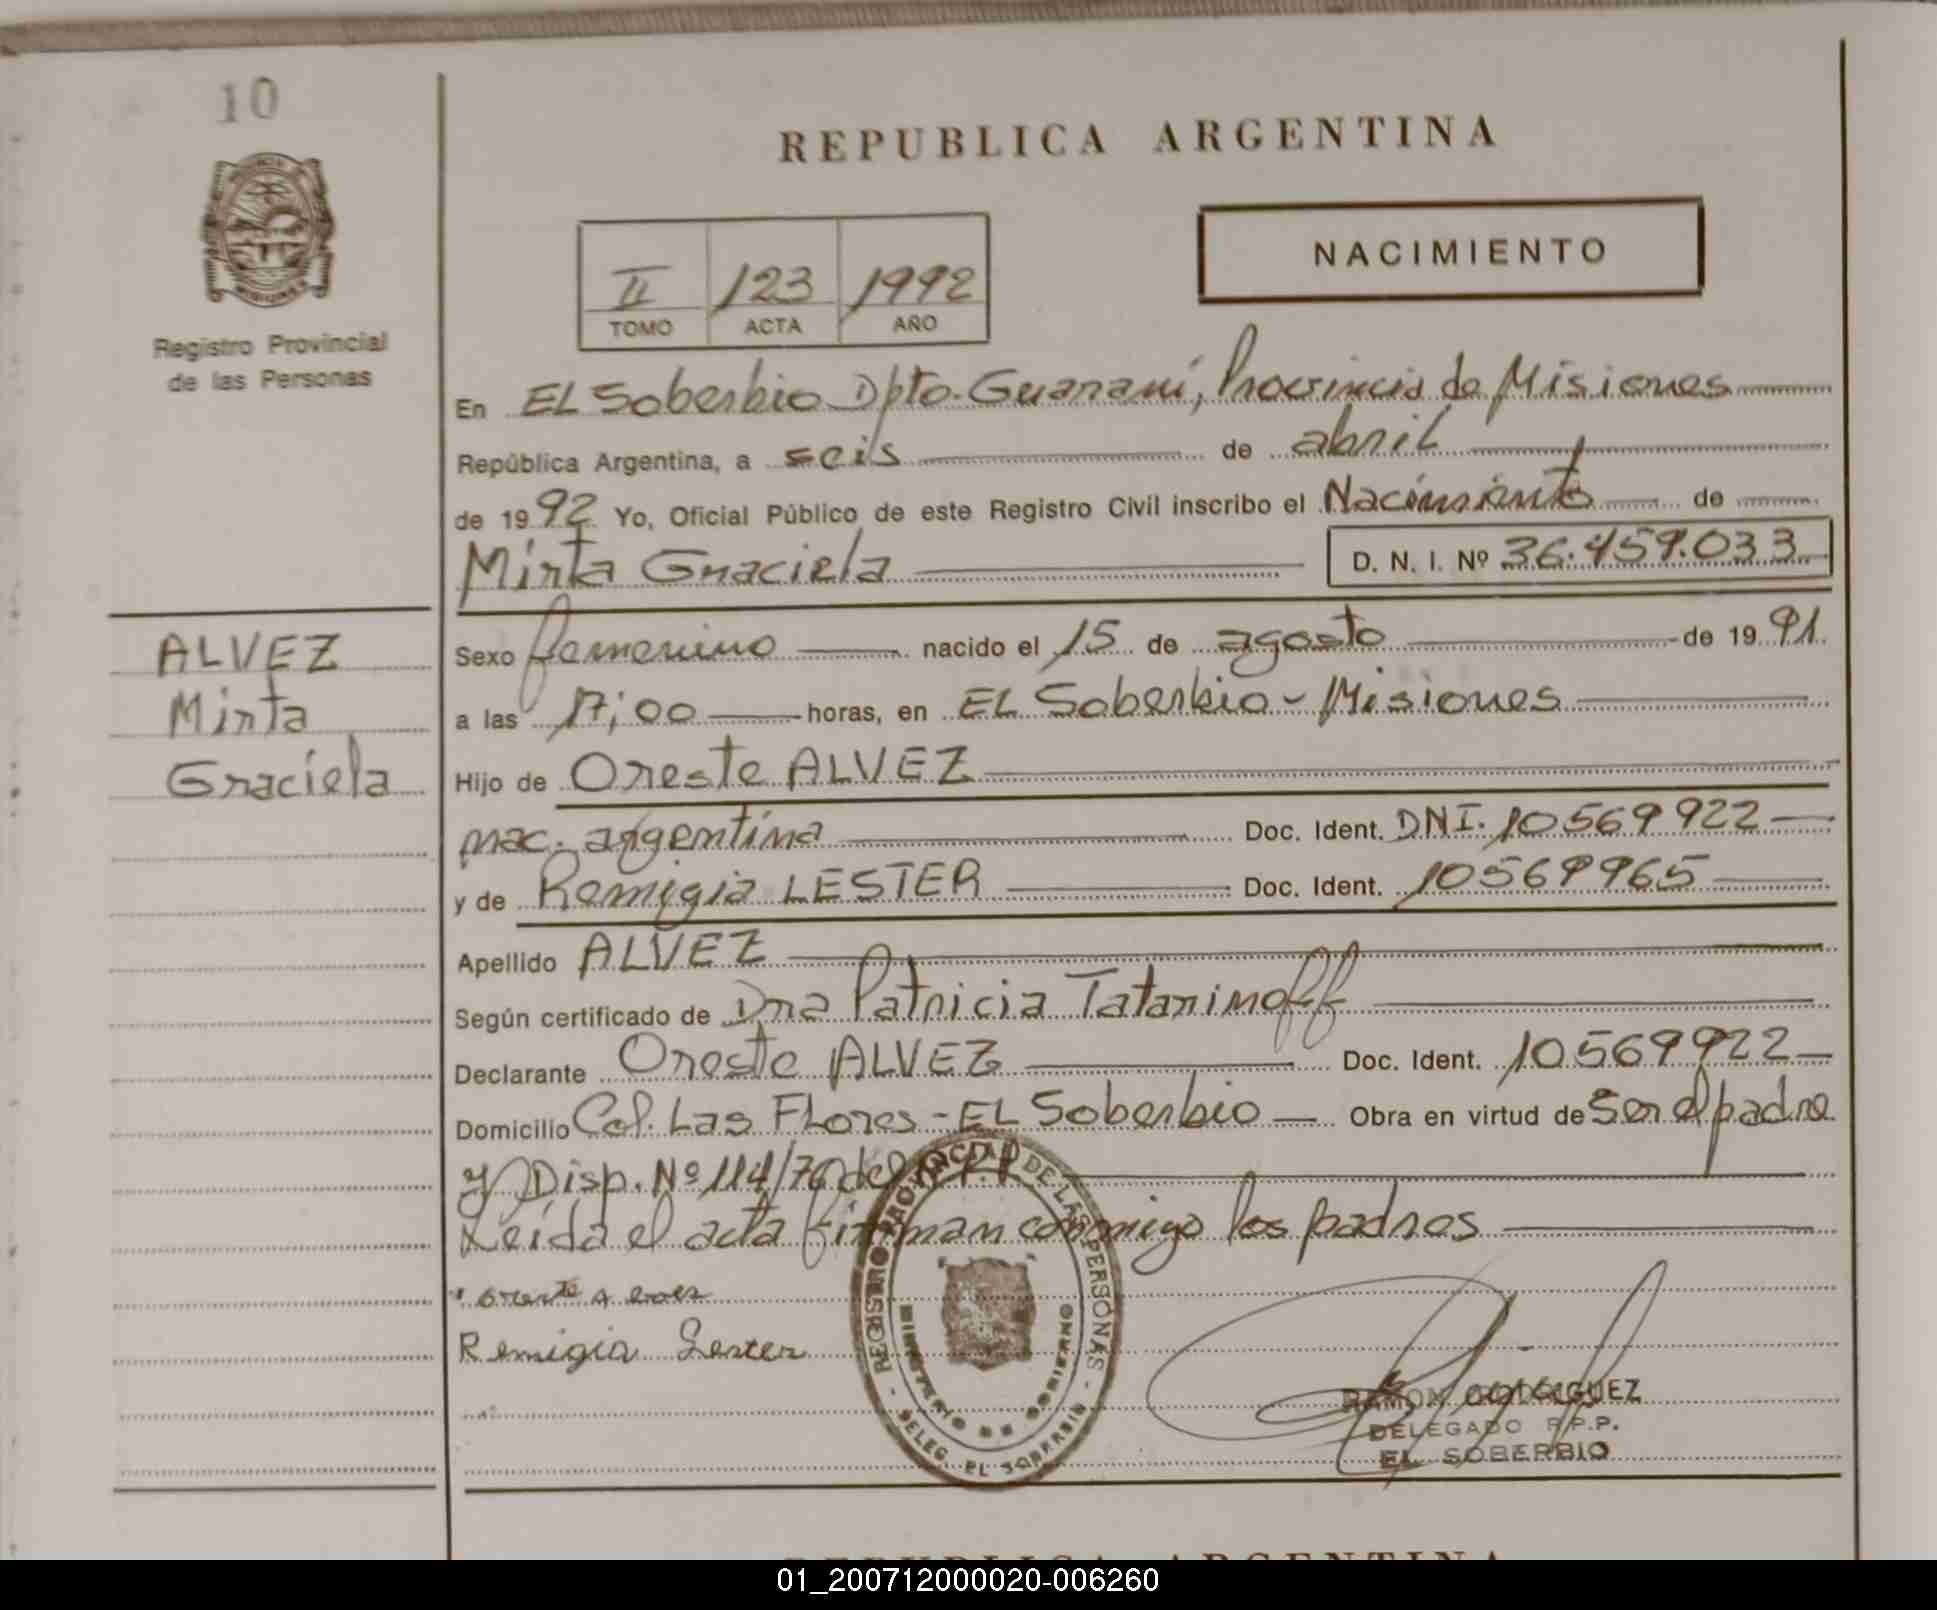 10
REPUBLICA ARGENTINA
NACIMIENTO
II 123 1992
TOMO ACTA AÑO
Registro Provincial
de las Personas
En EL Soberbio Dpto. Guaraní, Provincia de Misiones
República Argentina, a seis de abril
de 1992 Yo, Oficial Público de este Registro Civil inscribo el Nacimiento de
Mirta Graciela D. N. I. Nº 36.459.033
ALVEZ
Mirta
Graciela
Sexo femenino nacido el 15 de agosto de 1991
a las 17;00 horas, en EL Soberbio - Misiones
Hijo de Oreste ALVEZ
nac. argentina Doc. Ident. DNI. 10569922
y de Remigia LESTER Doc. Ident. 10569965
Apellido ALVEZ
Según certificado de Dra Patricia Tatarinoff
Declarante Oreste ALVEZ Doc. Ident. 10569922
Domicilio Col. Las Flores - EL Soberbio Obra en virtud de Ser el padre
y Disp. Nº 114/70 del R.P.P.
Leída el acta firman conmigo los padres
Remigia Lester
REGISTRO PROVINCIAL DE LAS PERSONAS
MINISTERIO DE GOBIERNO
DELEG. EL SOBERBIO
RAMON RODRIGUEZ
DELEGADO R.P.P.
EL SOBERBIO
REPUBLICA ARGENTINA
01_200712000020-006260